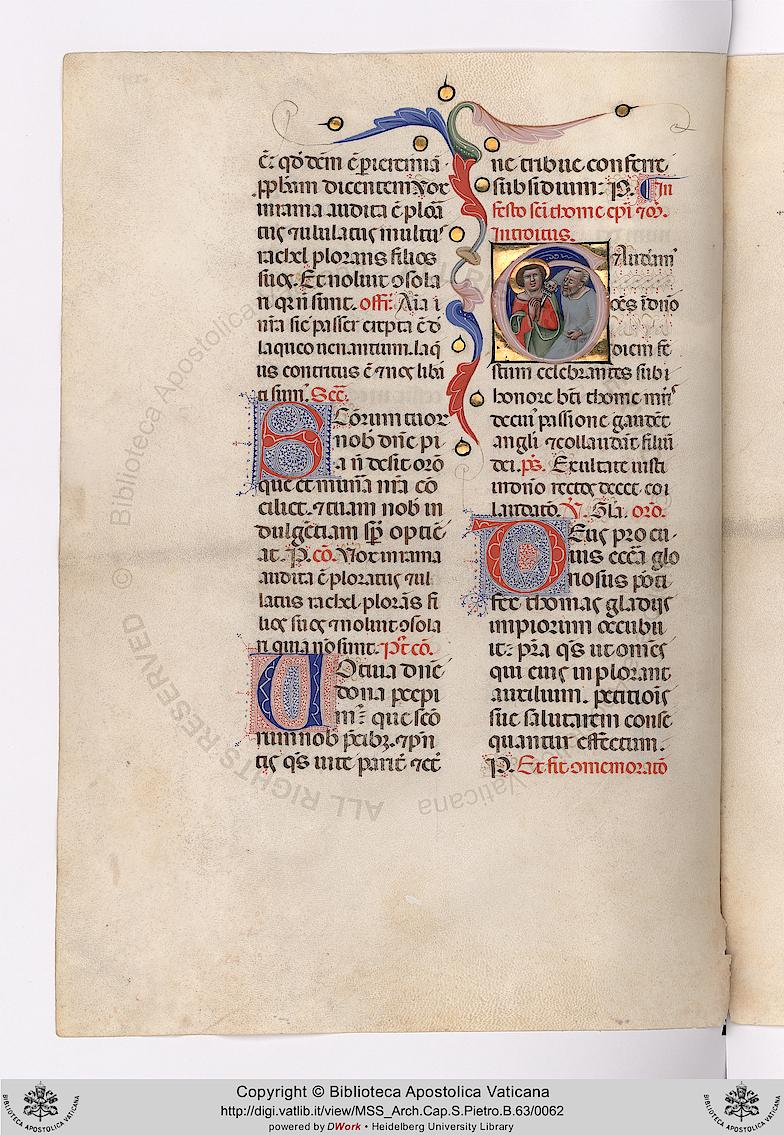 ē: qd dem ē p ieremiā
pphām dicentem Vox
in rama audita ē plorā
tus ⁊ ululatus multus
rachel plorans filios
suos. Et noluit ɔsola
ri qr n̄ sunt. offr̄. Aīa ī
nr̄a sic passer erepta ē d
laqueo uenantium. laq̄
us contritus ē ⁊ nos libā
ti sum᷒. Secͬ.
SCōrum tuor
nob dn̄e pi
a n̄ desit orō
que et munīa nr̄a cō
ciliet. ⁊ tuam nob in
dulgētiam sp̄ optiē
at. P. cō. Vox in rama
audita ē ploratus ⁊ ul
latus rachel plorās fi
lios suos ⁊ noluit ɔsola
ri quia nō sunt. Pt̄ cō.
VOtiua dn̄e
dona pcepi
m᷒: que scō
rum nob p̄cibȝ. ⁊ p̄n
tis qs uite parit̄ ⁊ et̄
ne tribue conferre
subsidium: P. In
festo scī thome epī ⁊ m̄.
Introitus.
GAudeam᷒
oēs ī dn̄o
diem fe
stum celebrantes sub ī
honore bt̄i thome mr̄is
de cui᷒ passione gaudēt
angli ⁊ collaudāt filiū
dei. ps. Exultate iusti
in dn̄o rectos decet col
laudatō. V. Gl̄a. orō.
DEus pro cui
ius ecc̄a glo
riosus pōti
fex thomas gladijs
impiorum occubu
it: p̄ra qs ut omēs
qui eius inplorant
auxilium. petitiōis
sue salutarem conse
quantur effectum.
P. Et fit ɔmemoratō
© Biblioteca Apostolica Vaticana
ALL RIGHTS RESERVED
Copyright © Biblioteca Apostolica Vaticana
http://digi.vatlib.it/view/MSS_Arch.Cap.S.Pietro.B.63/0062
powered by DWork • Heidelberg University Library
BIBLIOTECA APOSTOLICA VATICANA
BIBLIOTECA APOSTOLICA VATICANA